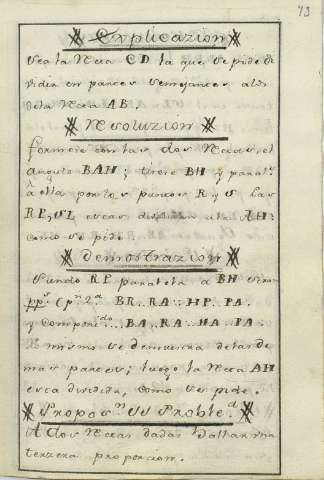 73
Explicazion
Sea la Recta CD la que se pide di
vidir en partes semejantes a las
dela Recta AB.
Resoluzion
formese con las dos Rectas el
angulo BAH; tirese BH y paral.
a ella por los puntos R y S las
RP, SL estas dividiran a la AH:
como se pide.
Demostrazion
Siendo RP paralela a BH seran
BR..RA::HP..PA.
y Componi.do BA..RA::HA..PA.
lo mismo se demuestra de las de
mas partes; luego la Recta AH
esta dividida, como se pide.
Propos.n VI Proble.a
A dos Rectas dadas hallar una
terzera proporcion.